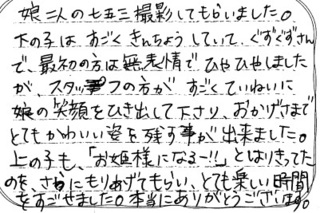 娘二人の七五三撮影してもらいました。
下の子は、すごくきんちょうしていて、ぐずぐずさん
で、最初の方は無表情でひやひやしました
が、スタッフの方がすごくていねいに
娘の笑顔をひき出して下さり、おかげさまで
とてもかわいい姿を残す事が出来ました。
上の子も、「お姫様になるー!!」とはりきってた
のを、さらにもりあげてもらい、とても楽しい時間
をすごせました。本当にありがとうございます。